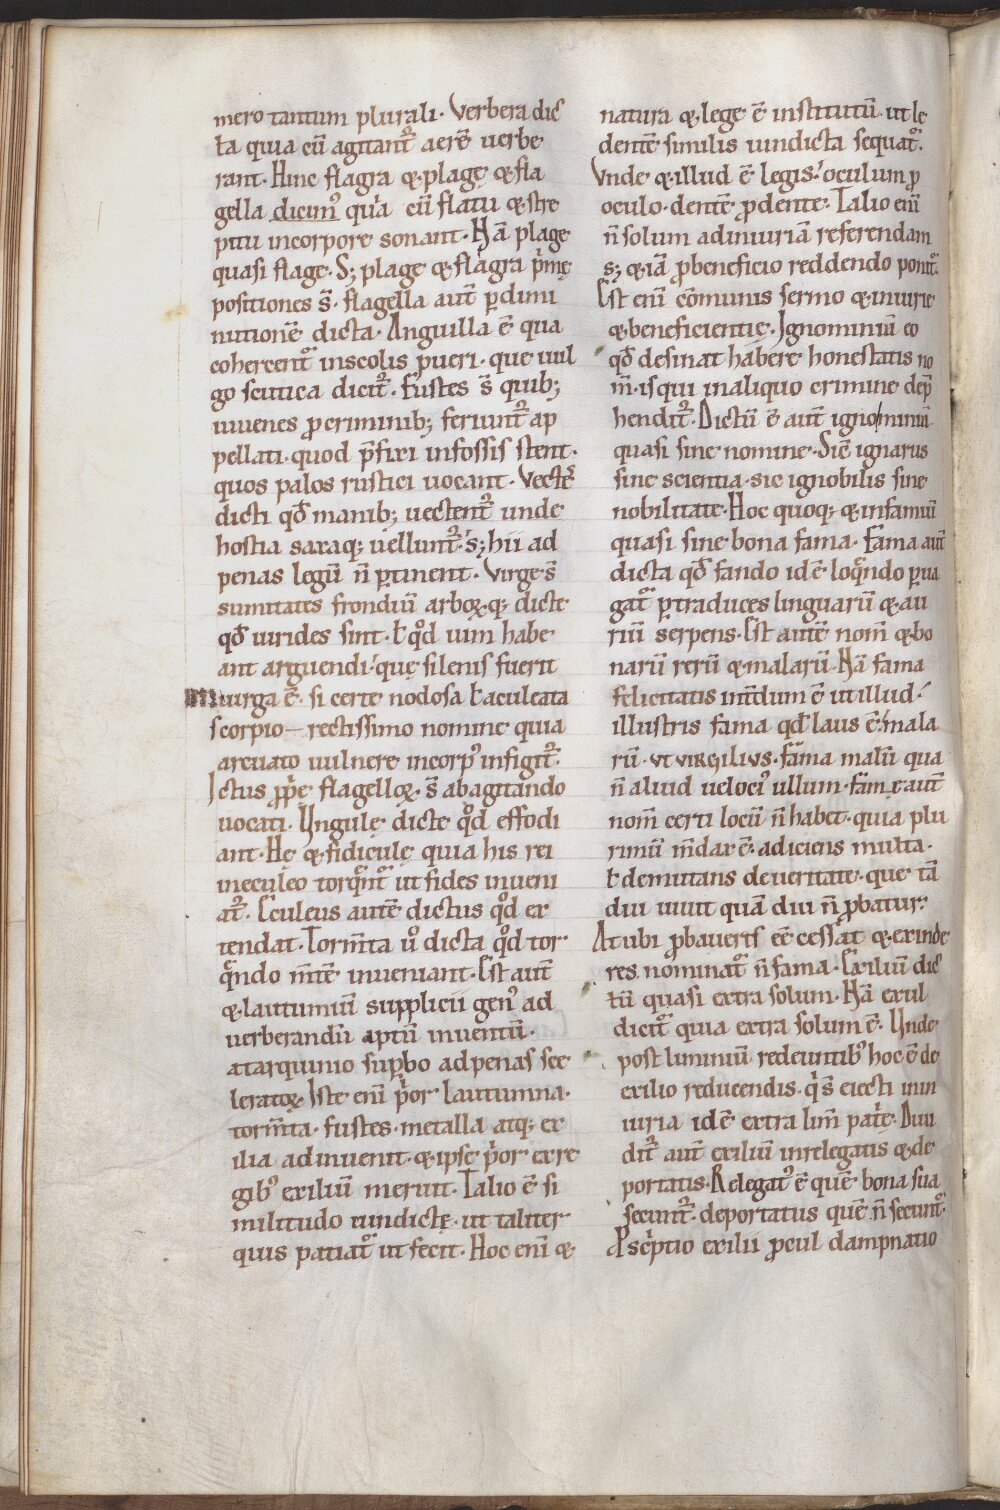 mero tantum plurali. Verbera dic̄
ta quia cū agitant᷑ aerē uerbe
rant. Hinc flagra & plagę & fla
gella dicim᷒ quia cū flatu & stre
pitu incorpore sonant. Nā plage
quasi flage. S; plage & flagra p̍mę
positiones s̄. flagella aut̄ ꝑdimi
nutionē dicta. Anguilla ē qua
coherent᷑ inscolis pueri. que uul
go scutica dicit᷑. Fustes s̄ quib;
iuuenes ꝓcriminib; feriunt᷑ ap
pellati. quod p̄fixi infossis stent.
quos palos rustici uocant. Vectes
dicti qđ manib; uectent᷑ unde
hostia saxaq; uellunt᷑. s; hii ad
penas legū n̄ ꝑtinent. Virge s̄
sumitates frondiū arboꝝ q; dicte
qđ uirides sint. ł qd̊ uim habe
ant arguendi. quę si lenis fuerit
uirga ē. si certe nodosa ł aculeata
scorpio rectissimo nomine quia
arcuato uulnere incorp᷒ infigit᷑.
Ictus ꝓp̍e flagelloꝝ. s̄ abagitando
uocati. Ungulę dicte qd̊ effodi
ant. Hę & fidiculę quia his rei
ineculeo torqn̄t᷑ ut fides inueni
at᷑. Eculeus autē dictus qd̊ ex
tendat. Torm̄ta ů dicta qd̊ tor
qndo m̄tē inueniant. Est aut̄
& lautumiū supplicii gen᷒ ad
uerberandū aptū inuentū.
atarquinio suꝑbo adpenas sce
leratoꝝ. Iste enī p̍or lautumna.
torm̄ta. fustes. metalla atq; ex
ilia adinuenit. & ipse p̍or exre
gib᷒ exiliū meruit. Talio ē si
militudo uindictę. ut taliter
quis patiat᷑ ut fecit. Hoc enī &
natura & lege ē institutū. ut le
dentē similis uindicta sequat᷑.
Vnde & illud ē legis. oculum ꝓ
oculo. dentē ꝓdente. Talio enī
n̄ solum adiniuriā referendam
s; & iā ꝓbeneficio reddendo ponit᷑.
Est enī cōmunis sermo & iniurie
& beneficientię. Ignominiū eo
qđ desinat habere honestatis no
m̄. is qui inaliquo crimine dep̄
hendit᷑. Dictū ē aut̄ ignominiū
quasi sine nomine. Sic̄ ignarus
sine scientia. sic ignobilis sine
nobilitate. Hoc quoq; & infamiū
quasi sine bona fama. Fama aut̄
dicta qđ fando id ē loqndo ꝑua
gat᷑ ꝑtraduces linguarū & au
riū serpens. Est autē nom̄ & bo
narū rerū & malarū. Nā fama
felicitatis int̄dum ē ut illud.
illustris fama qđ laus ē. mala
rū. VT VIRGILIVS. fama malū qua
n̄ aliud ueloci᷒ ullum. famę aut̄
nom̄ certi locū n̄ habet. quia plu
rimū m̄dax ē. adiciens multa.
ł demutans deueritate. que tā
diu uiuit quā diu n̄ ꝓbatur.
At ubi ꝓbaueris eē cessat & exinde
res nominat᷑ n̄ fama. Exiliū dic̄
tū quasi extra solum. Nā exul
dicit᷑ quia extra solum ē. Unde
post liminiū redeuntib᷒ hoc ē de
exilio reducendis. q̍ s̄ eiecti inin
iuria id ē extra lim̄ pat̍e. Diui
dit᷑ aut̄ exiliū inrelegatis & de
portatis. Relegat᷒ ē quē bona sua
secunt᷑. deportatus quē n̄ secunt᷑.
Psc̍ptio exilii ꝓcul dampnatio